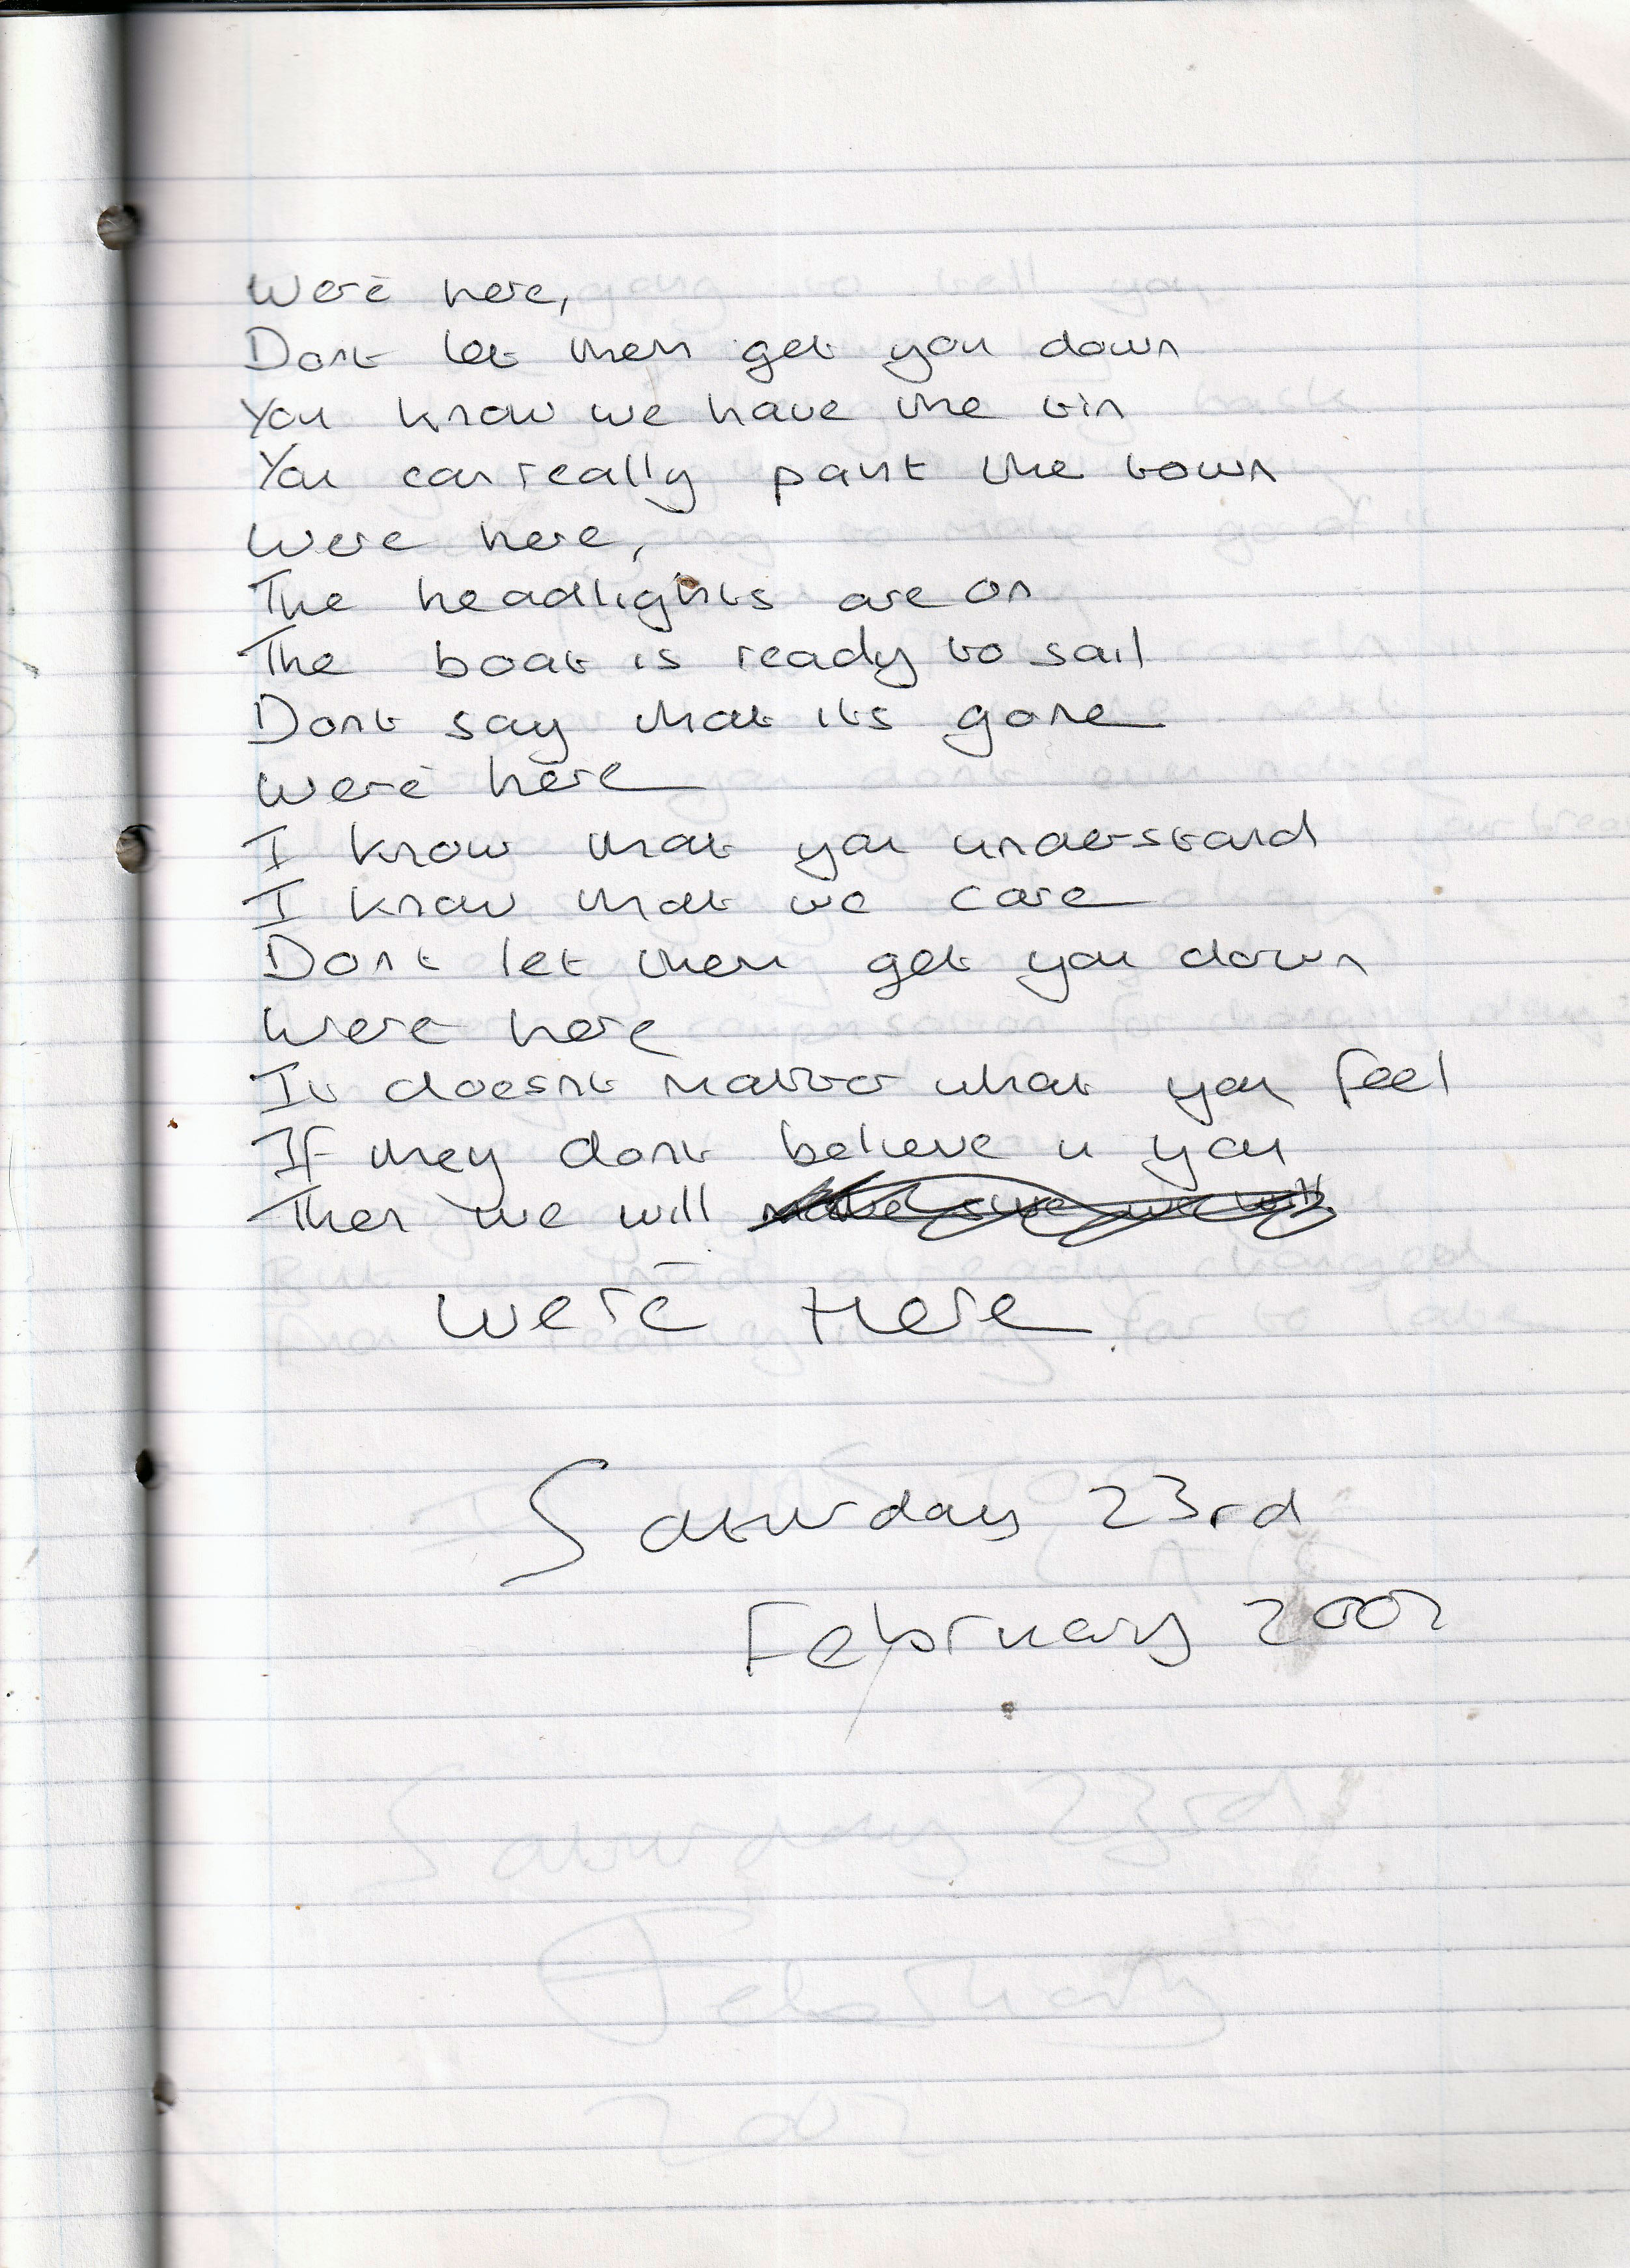 Were here,
Dont let them get you down
You know we have the tin
You can really paint the town
Were here,
The headlights are on
The boat is ready to sail
Dont say that its gone
Were here
I know that you understand
I know that we care
Dont let them get you down
Were here
It doesnt matter what you feel
If they dont believe in you
Then we will make sure we will
We're Here
Saturday 23rd
February 2002